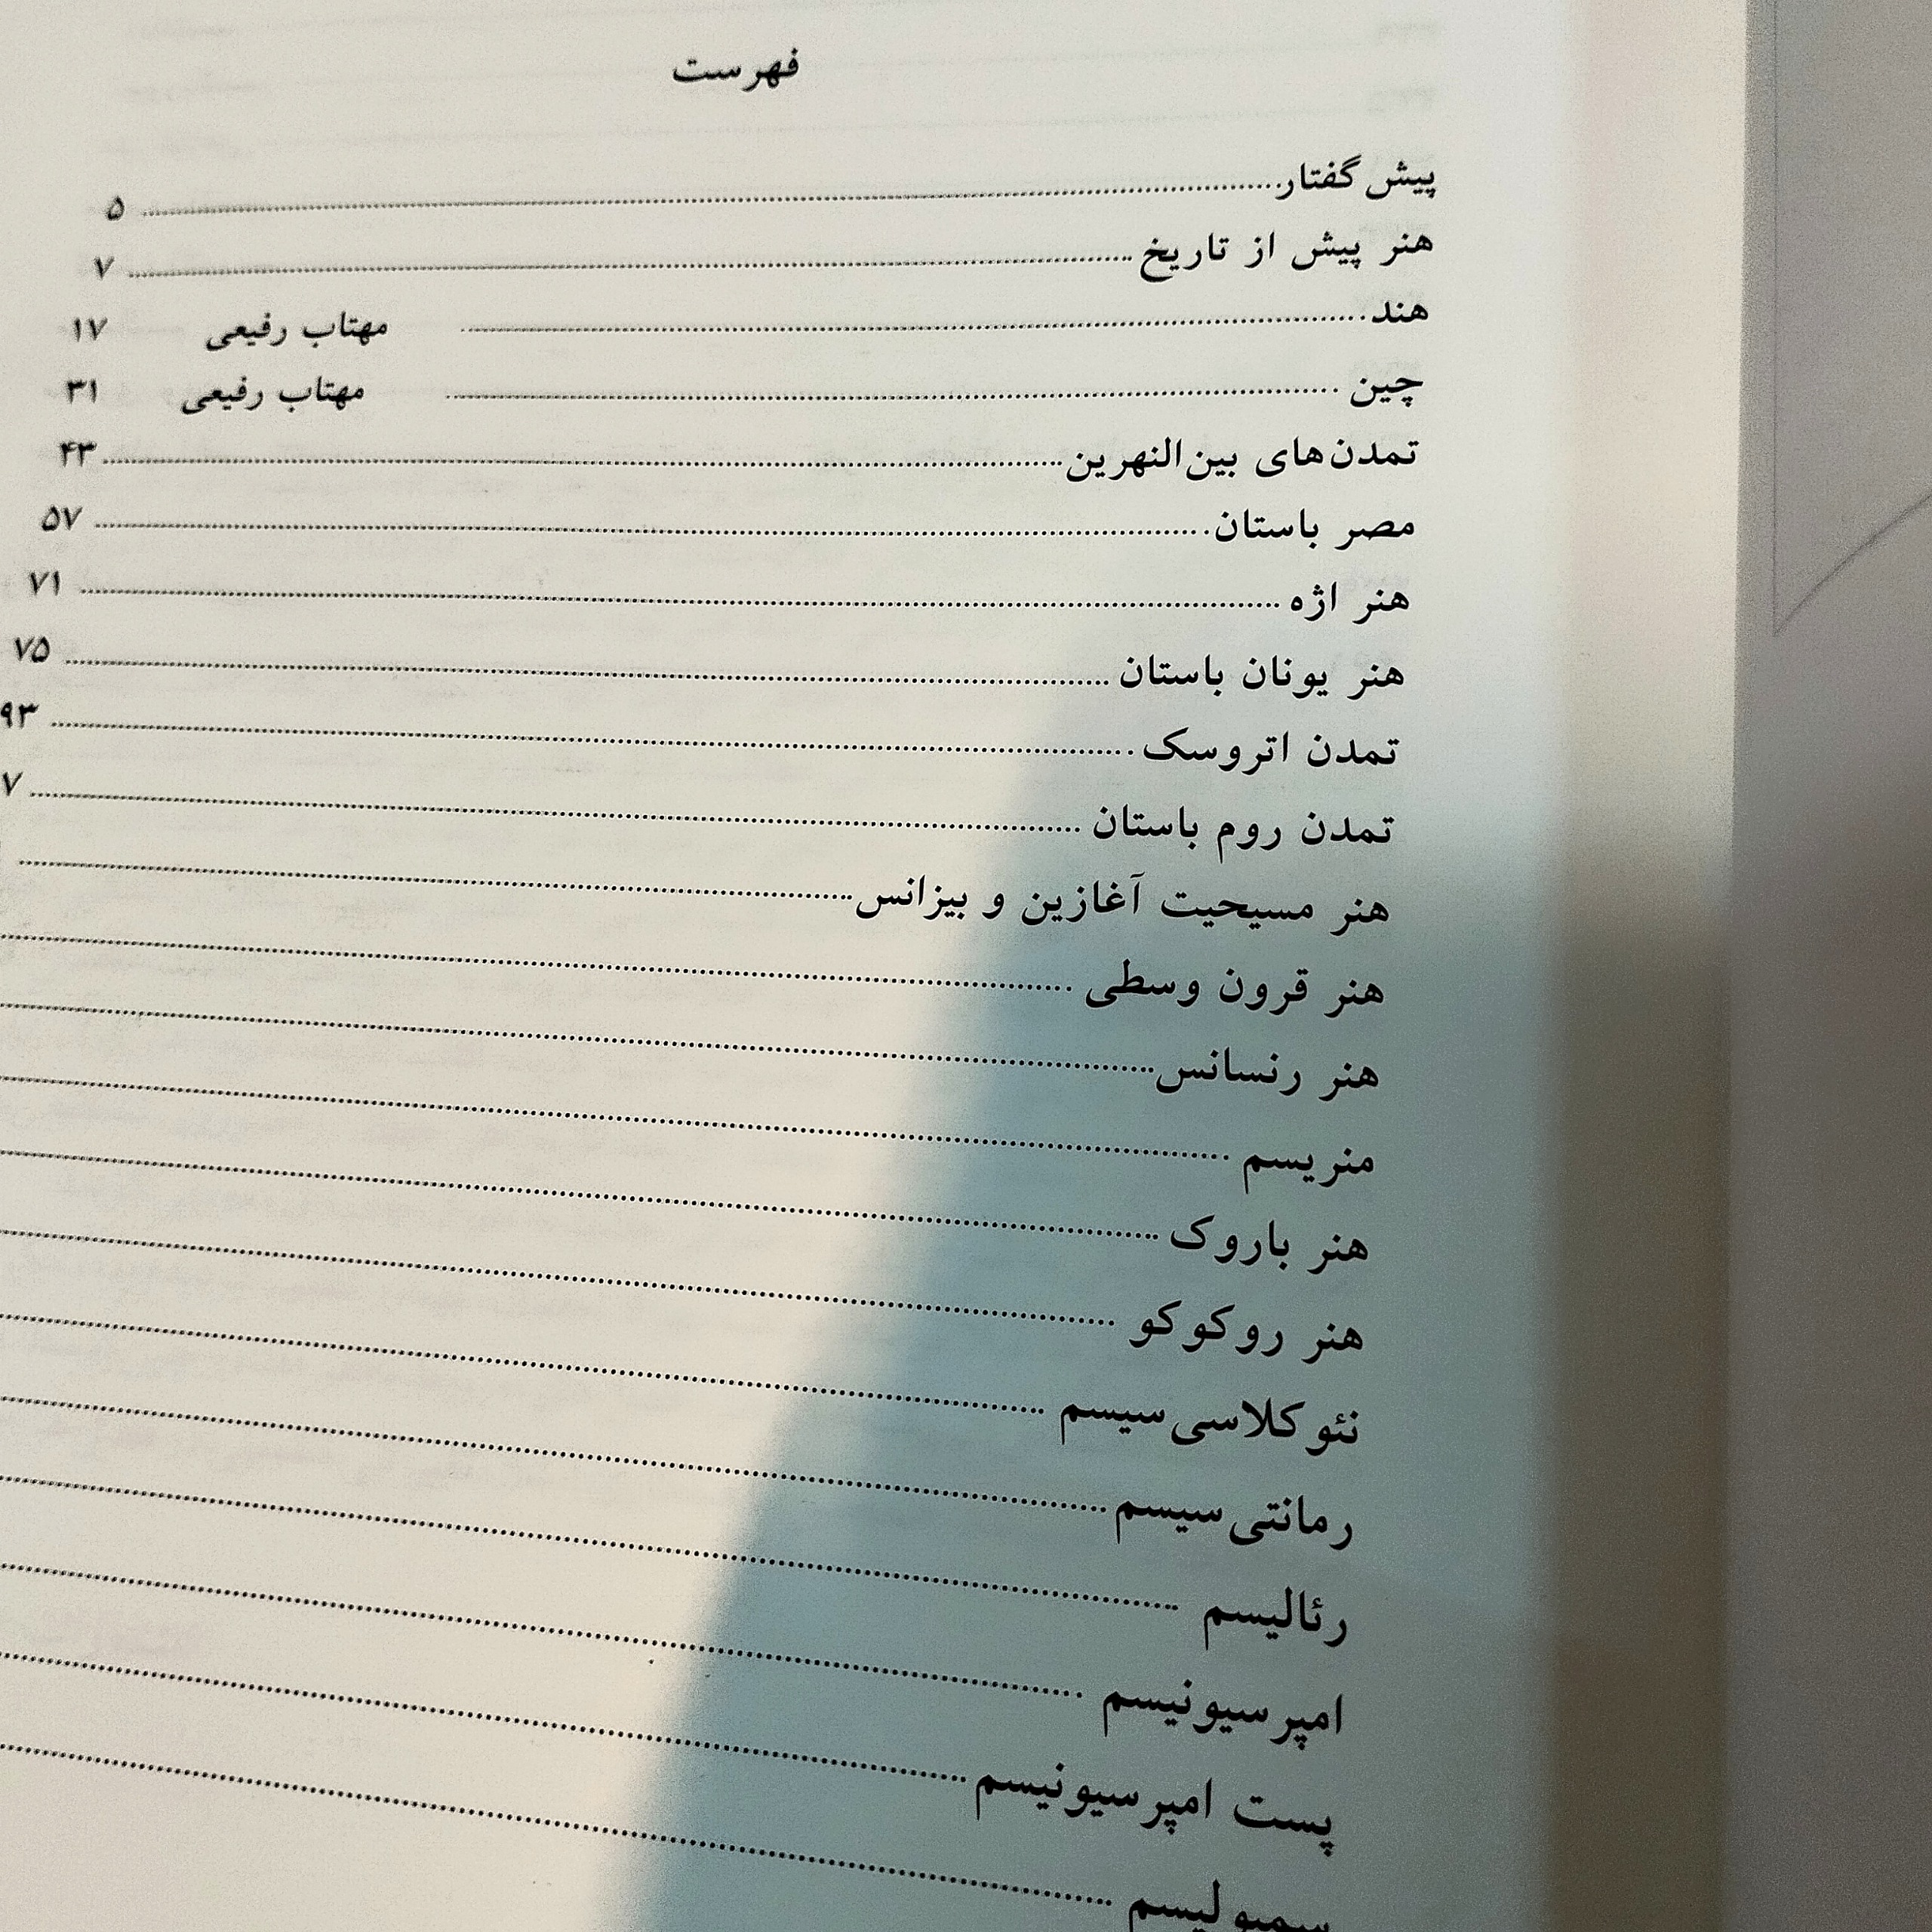 فهرست
پیش گفتار ۵
هنر پیش از تاریخ ۷
هند مهتاب رفیعی ۱۷
چین مهتاب رفیعی ۳۱
تمدن‌های بین‌النهرین ۴۳
مصر باستان ۵۷
هنر اژه ۷۱
هنر یونان باستان ۷۵
تمدن اتروسک ۹۳
تمدن روم باستان ۷
هنر مسیحیت آغازین و بیزانس
هنر قرون وسطی
هنر رنسانس
منریسم
هنر باروک
هنر روکوکو
نئوکلاسی‌سیسم
رمانتی‌سیسم
رئالیسم
امپرسیونیسم
پست امپرسیونیسم
سمبولیسم